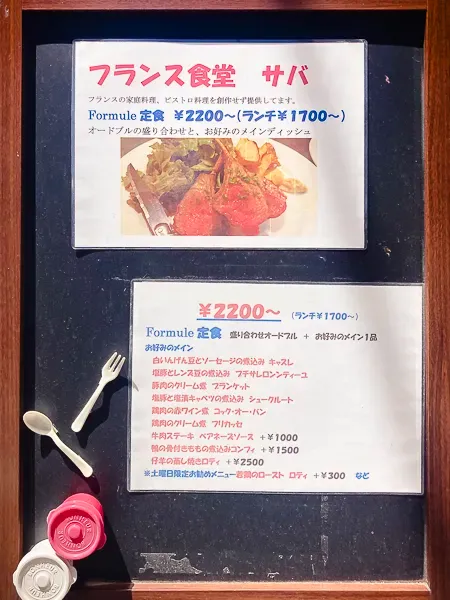 フランス食堂 サバ
フランスの家庭料理、ビストロ料理を創作せず提供してます。
Formule 定食 ¥2200～(ランチ¥1700～)
オードブルの盛り合わせと、お好みのメインディッシュ
¥2200～ (ランチ¥1700～)
Formule 定食 盛り合わせオードブル + お好みのメイン1品
お好みのメイン
白いんげん豆とソーセージの煮込み カスレ
塩豚とレンズ豆の煮込み プチサレロンティーユ
豚肉のクリーム煮 ブランケット
塩豚と塩漬キャベツの煮込み シュークルート
鶏肉の赤ワイン煮 コック・オー・バン
鶏肉のクリーム煮 フリカッセ
牛肉ステーキ ベアネーズソース +¥1000
鴨の骨付きももの煮込みコンフィ +¥1500
仔羊の蒸し焼きロティ +¥2500
※土曜日限定お勧めメニュー若鶏のロースト ロティ +¥300 など